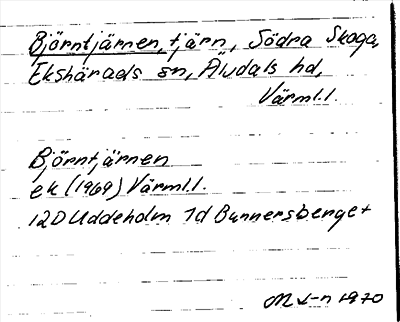 Björntjärnen, tjärn, Södra Skoga,
Ekshärads sn, Älvdals hd,
Värml.l.
Björntjärnen
ek (1969) Värml.l.
12D Uddeholm 1d Bannersberget
1970